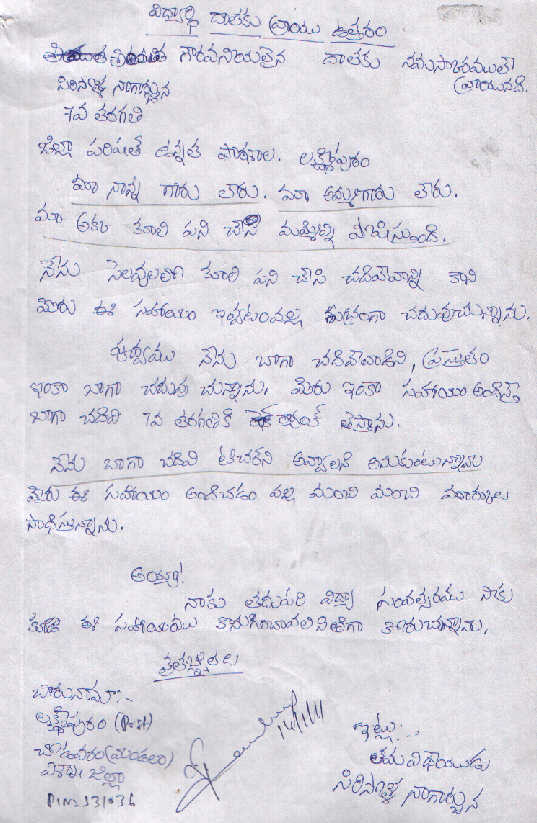 విద్యార్థి దాతకు వ్రాయు ఉత్తరం
గౌరవనియులైన దాతకు నమస్కారములతో
వ్రాయునది.
సిరిపల్లి నాగార్జున
7వ తరగతి
జిల్లా పరిషత్ ఉన్నత పాఠశాల. లక్ష్మీపురం
మా నాన్న గారు లేరు. మా అమ్మగారు లేరు.
మా అక్క కూలి పని చేసి మమ్మల్ని పోషిస్తుంది.
నేను సెలవులలో కూలి పని చేసి చదివేవాన్ని కాని
మీరు ఈ సహాయం ఇవ్వటంవల్ల శుభ్రంగా చదువుచున్నాను.
పూర్వము నేను బాగా చదివేవాడిని, ప్రస్తుతం
ఇంకా బాగా చదువు చున్నాను, మీరు ఇంకా సహాయం అందిస్తే
బాగా చదివి 7వ తరగతికి తెస్తాను.
నేను బాగా చదివి టీచర్ని అవ్వాలని అనుకుంటున్నాను
మీరు ఈ సహాయం అందించడం వల్ల మంచి మంచి మార్కులు
సాధిస్తున్నాను.
అయ్యా!
నాకు తదుపరి విద్యా సంవత్సరము నాకు
కూడా ఈ సహాయము కొనసాగించాలని కోరుచున్నాను.
చిరునామా..
లక్ష్మీపురం (Post)
చోడవరం (మండలం)
విశాఖ జిల్లా
Pin 531036
14/1/11
ఇట్లు..
తమ విధేయుడు
సిరిపల్లి నాగార్జున